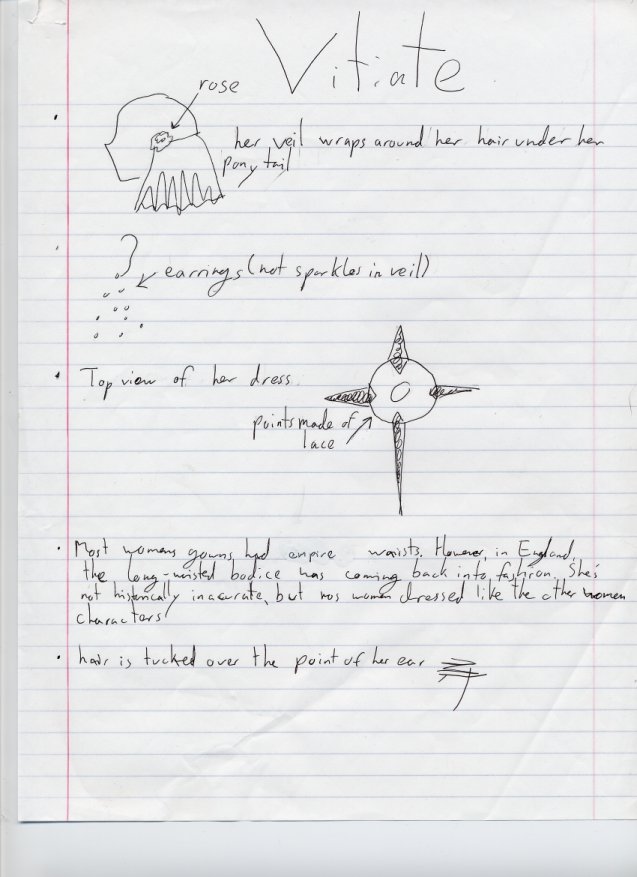 Vitiate
rose
her veil wraps around her hair under her
pony tail
earrings (not sparkles in veil)
Top view of her dress.
points made of
lace
Most womens gowns had empire waists. However, in England,
the long-waisted bodice was coming back into fashion. She's
not historically inaccurate, but mos women dressed like the other women
characters
hair is tucked over the point of her ear